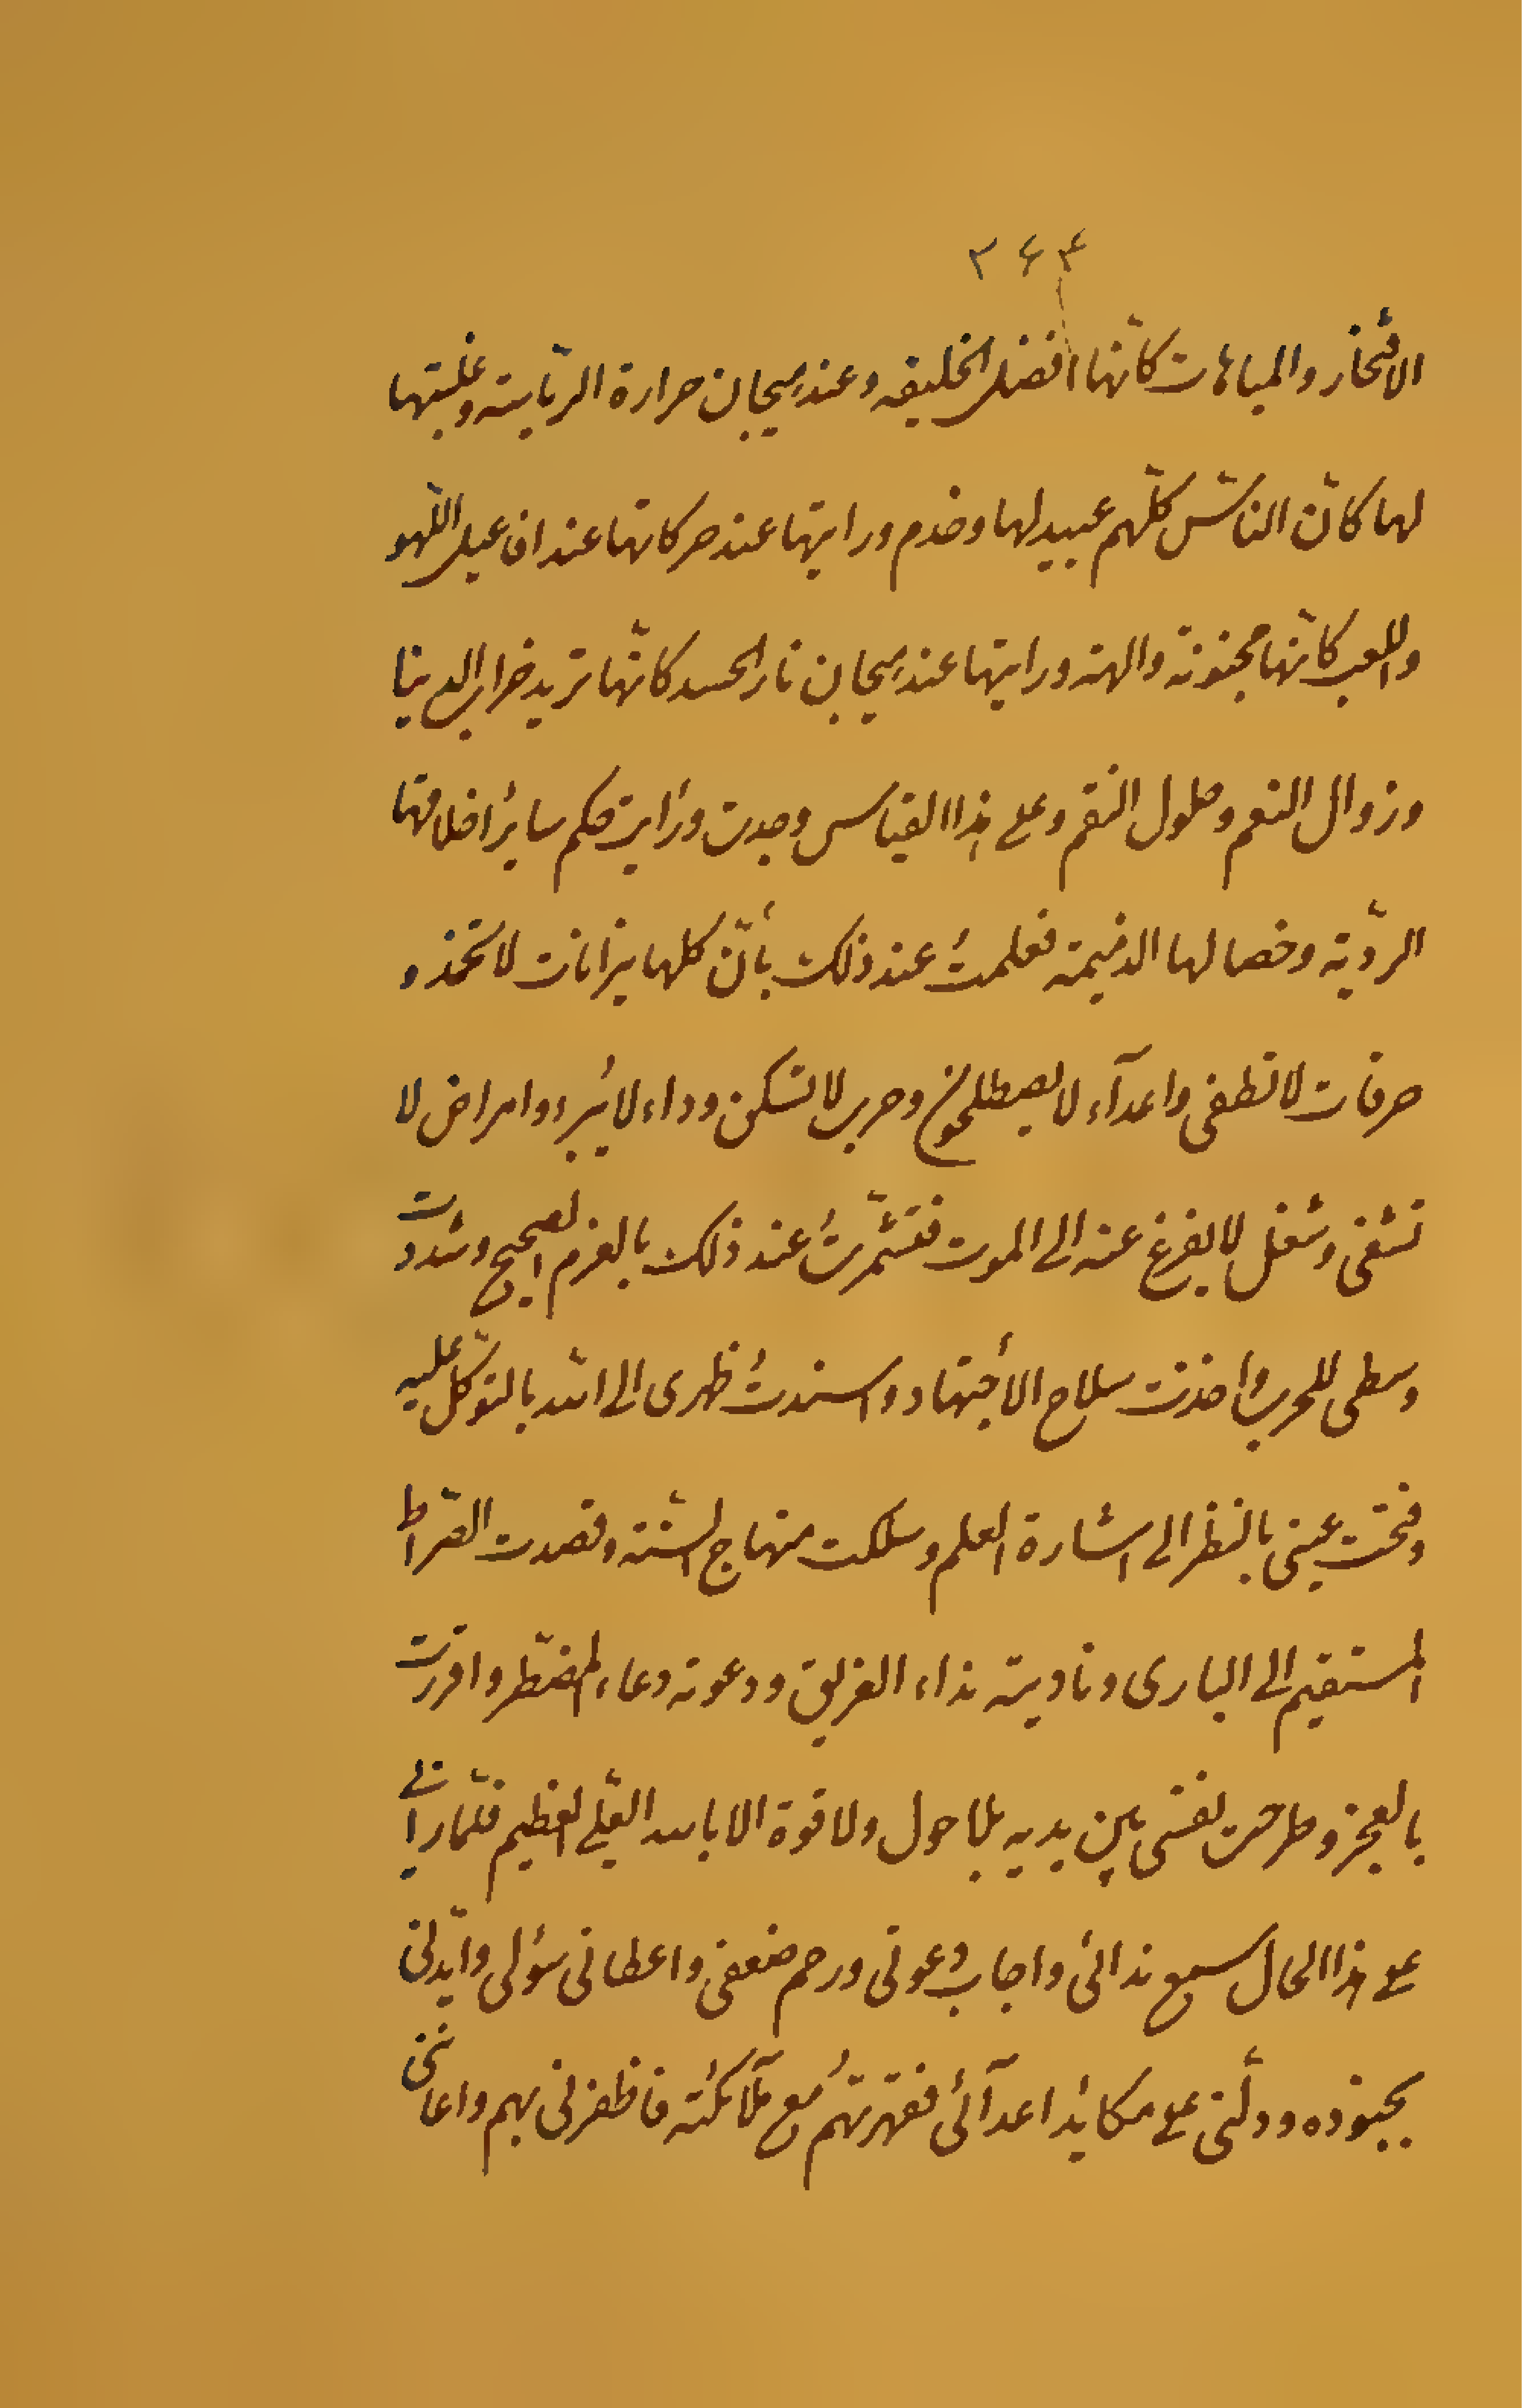 ۳۶۴
الافتخار والمباهات كانّها افضل الخليقه وعند هيجان حرارة الريّاسته وغلبتها
لها كانّ الناس كلّهم عبيد لها وخدم ورايتها عند حركاتها عند افاعيل اللّهو
واللعب كانّها مجنونة والهته ورايتها عند هيجان نار الحسد كانّها تريد خراب الدينا
وزوال النعم وحلول النقم وعلى هذا القياس وجدت ورأيت حكم ساير اخلاقها
الرديّة وخصالها الذميمة فعلمتُ عند ذلك بأنّ كلها نيرانات لا تخمذ و
حرقات لا تطفى واعدآء لا يصطلحون وحرب لا تسكن وداء لا يبرء وامراض لا
تشفى وشغل لا يفرغ عنه الى الموت فتشمّرتُ عند ذلك بالعزم الصحيح وشددت
وسطى للحرب واخذت سلاح الأجتهاد واسندتُ ظهرى الى الله بالتوكّل عليه
وفتحت عينى بالنظر الى اشارة العلم وسلكت منهاج السّنته وقصدت الصّراط
المستقيم الى البارى وناديته نداء الغريق ودعوته دعاء المضطّر واقررت
بالعجز وطرحت نفسى بين يديه بلا حول ولا قوة الا بالله العلّى العظيم فلّما رانى
على هذا الحال سمع ندائى واجاب دعوتى ورحم ضعفى واعطانى سؤلى وايّدنى
بجنوده ودلّنى على مكائد اعدآئى فقهرتهُم مع ملآئكته فاظفرنى بهم واعاننى